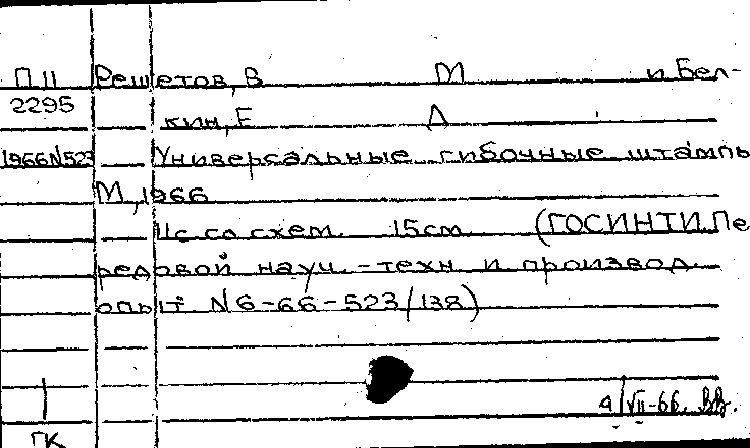 П 11 Решетов, В М и Бел-
2295
кин, Е Д
1966 N 523 Универсальные гибочные штампы
М, 1966
11с со схем. 15см (ГОСИНТИ. Пе
редовой науч.-техн и производ.
опыт N 6-66-523/138)
4/VII-66.
ГК